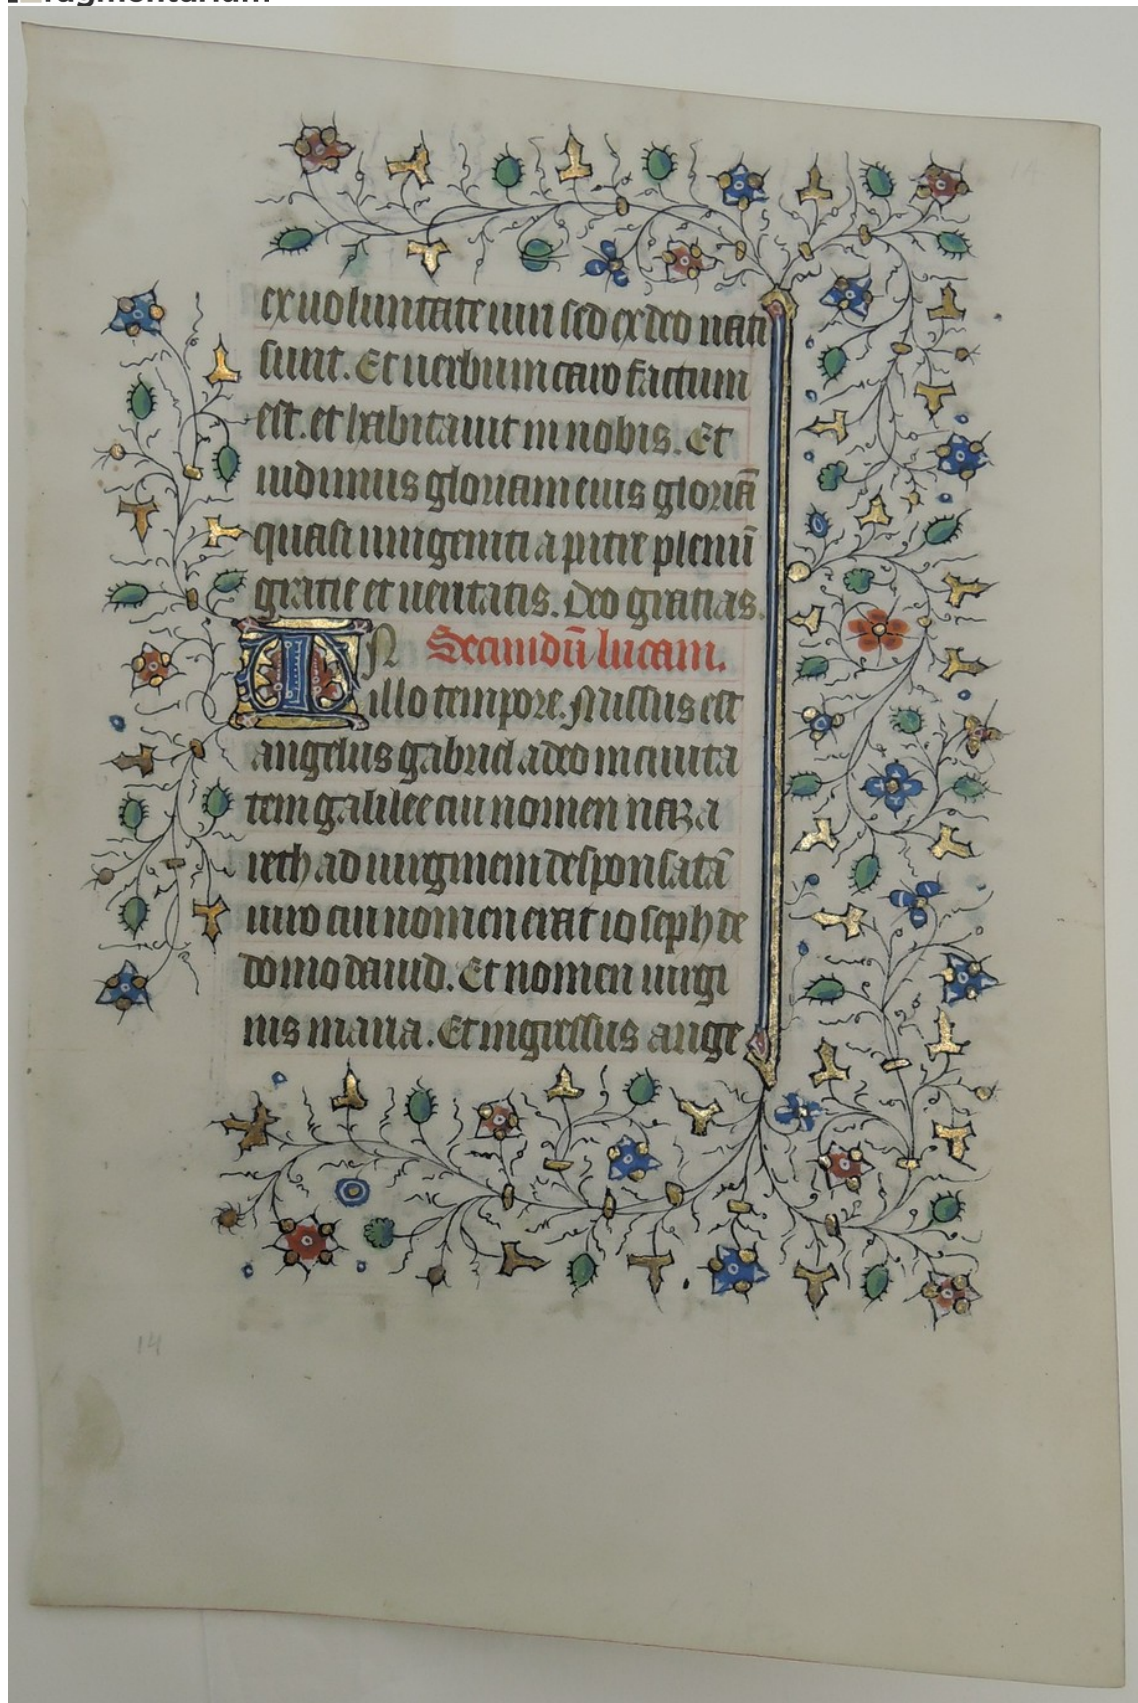 ragmentarium
ex uoluntate uiri sed ex deo nati
sunt. Et uerbum caro factum
est. et habitauit in nobis. Et
uidimus gloriam eius gloriā
quasi unigeniti a patre plenū
gratie et ueritatis. Deo gratias.
IN Secundū lucam.
illo tempore. Missus est
angelus gabriel a deo in ciuita
tem galilee cui nomen naza
reth ad uirginem desponsatā
uiro cui nomen erat ioseph de
domo dauid. Et nomen uirgi
nis maria. Et ingressus ange
14
14